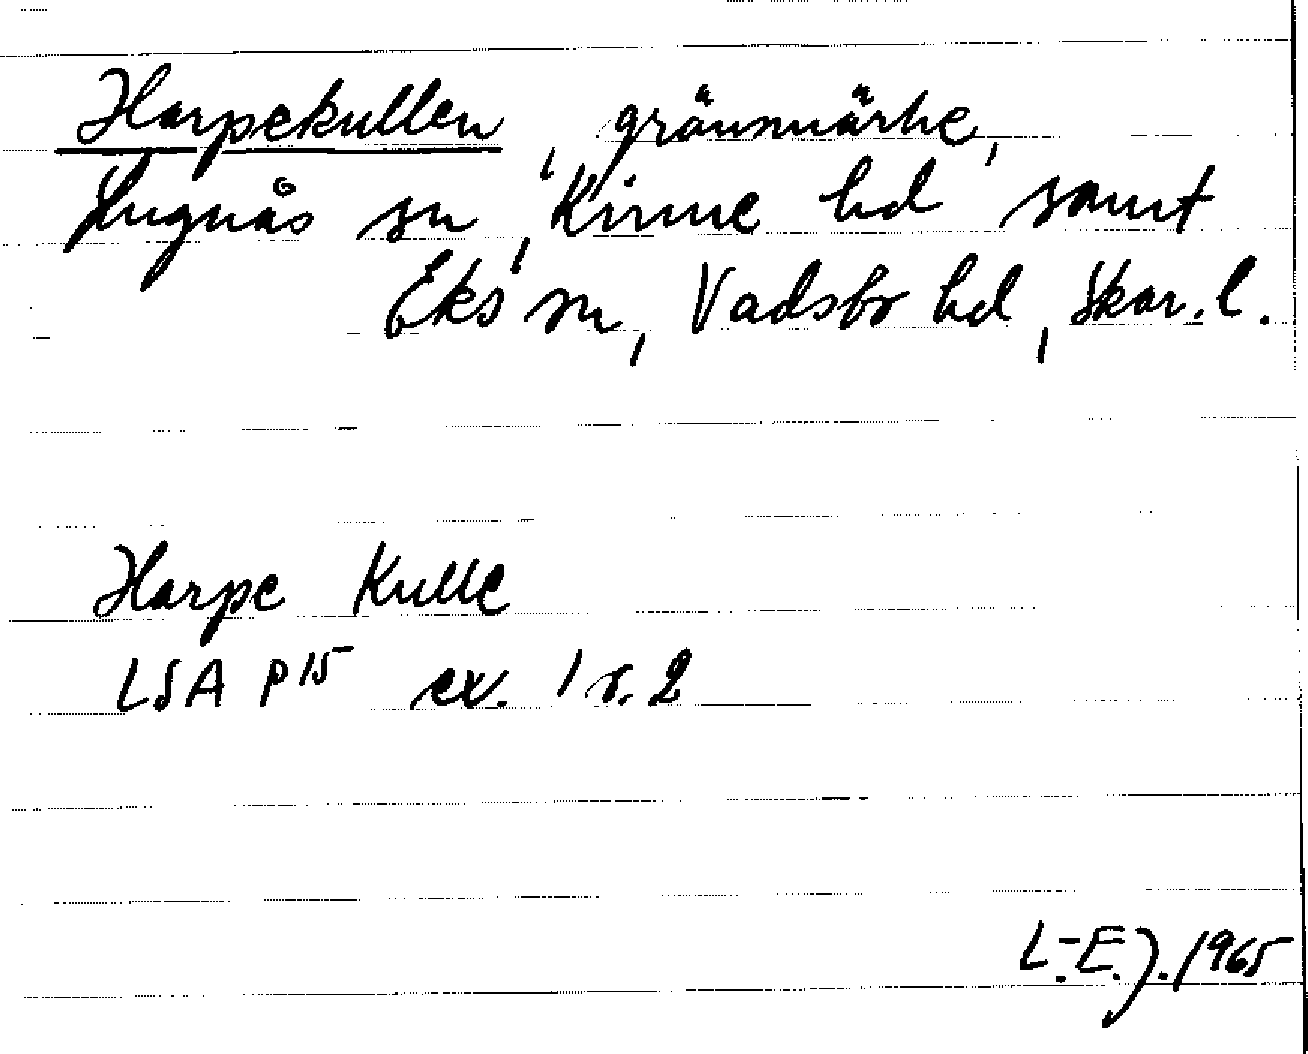 Harpekullen, gränsmärke,
Lugnås sn, Kinne hd samt
Eks sn, Vadsbo hd, Skar. l.
Harpe Kulle
LSA P 15 ex. 1 s. 2
L.-E. J. 1965